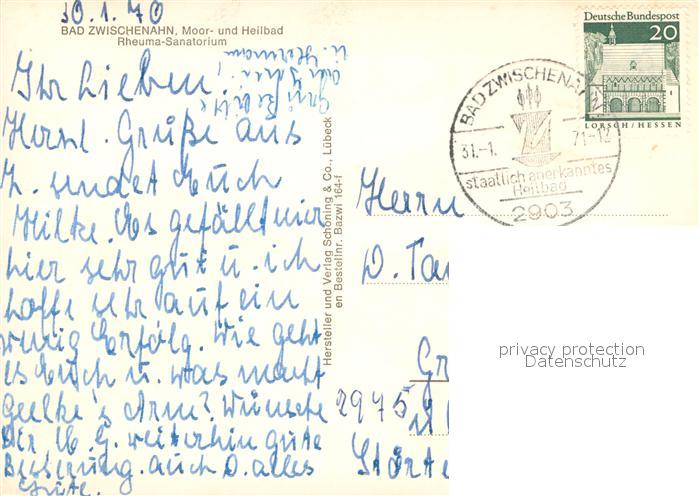 30.1.70
BAD ZWISCHENAHN, Moor- und Heilbad
Rheuma-Sanatorium
Ihr Lieben!
Herzl. Grüße aus
Z. sendet Euch
Hilke. Es gefällt mir
hier sehr gut u. ich
hoffe sehr auf ein
wenig Erfolg. Wie geht
es Euch u. was macht
Arm? Wünsche
weiterhin gute
Besserung. auch D. alles
Gute.
Grüße bitte
u. Hermann
Hersteller und Verlag Schöning & Co., Lübeck
en Bestellnr. Bazwi 164-f
Deutsche Bundespost
20
LORSCH/HESSEN
BAD ZWISCHENAHN
31.-1. 71-12
staatlich anerkanntes
Heilbad
2903
Herrn
D. Tan
Gr
2945
Störte
privacy protection
Datenschutz